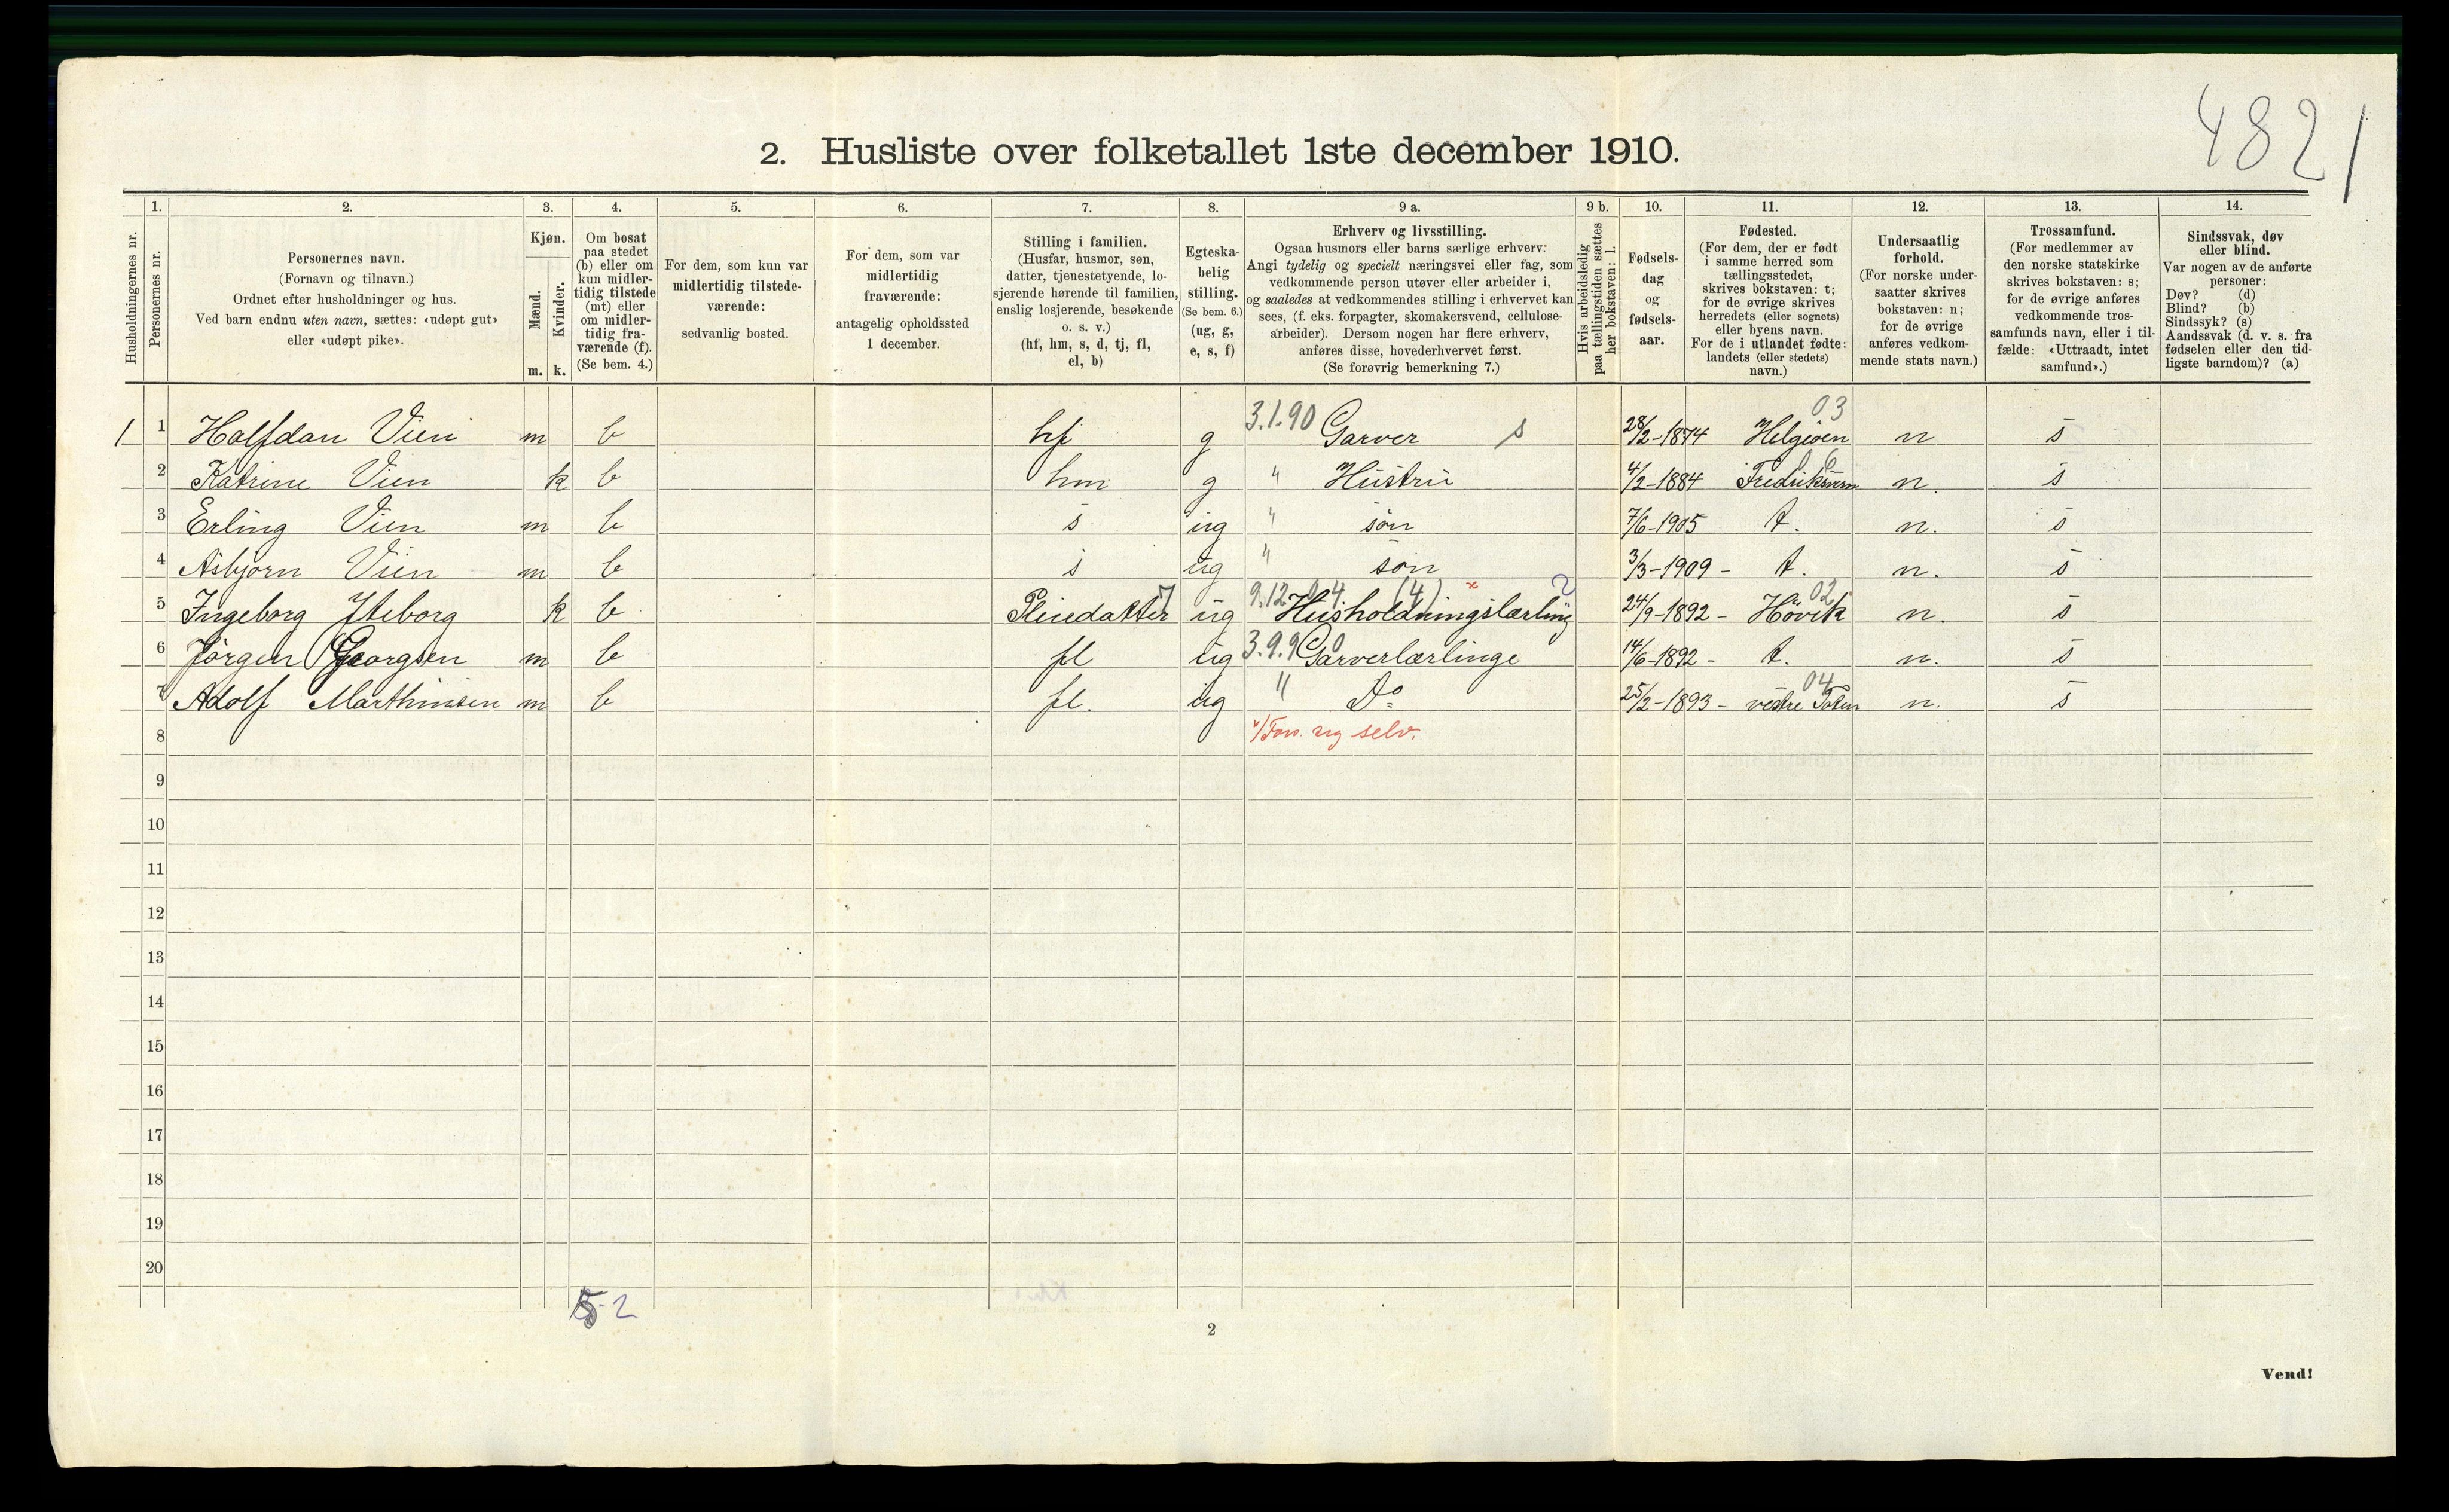 4821
2. Husliste over folketallet 1ste december 1910.
Husholdningernes nr.
1.
Personernes nr.
2.
Personernes navn.
(Fornavn og tilnavn.)
Ordnet efter husholdninger og hus.
Ved barn endnu uten navn, sættes: «udøpt gut»
eller «udøpt pike».
3.
Kjøn.
Mænd.
Kvinder.
m. k.
4.
Om bosat
paa stedet
(b) eller om
kun midler-
tidig tilstede
(mt) eller
om midler-
tidig fra-
værende (f).
(Se bem. 4.)
5.
For dem, som kun var
midlertidig tilstede-
værende:
sedvanlig bosted.
6.
For dem, som var
midlertidig
fraværende:
antagelig opholdssted
1 december.
7.
Stilling i familien.
(Husfar, husmor, søn,
datter, tjenestetyende, lo-
sjerende hørende til familien,
enslig losjerende, besøkende
o. s. v.)
(hf, hm, s, d, tj, fl,
el, b)
8.
Egteska-
belig
stilling.
(Se bem. 6.)
(ug, g,
e, s, f)
9 a.
Erhverv og livsstilling.
Ogsaa husmors eller barns særlige erhverv:
Angi tydelig og specielt næringsvei eller fag, som
vedkommende person utøver eller arbeider i,
og saaledes at vedkommendes stilling i erhvervet kan
sees, (f. eks. forpagter, skomakersvend, cellulose-
arbeider). Dersom nogen har flere erhverv,
anføres disse, hovederhvervet først.
(Se forøvrig bemerkning 7.)
9 b.
Hvis arbeidsledig
paa tællingstiden sættes
her bokstaven: l.
10.
Fødsels-
dag
og
fødsels-
aar.
11.
Fødested.
(For dem, der er født
i samme herred som
tællingsstedet,
skrives bokstaven: t;
for de øvrige skrives
herredets (eller sognets)
eller byens navn.
For de i utlandet fødte:
landets (eller stedets)
navn.)
12.
Undersaatlig
forhold.
(For norske under-
saatter skrives
bokstaven: n;
for de øvrige
anføres vedkom-
mende stats navn.)
13.
Trossamfund.
(For medlemmer av
den norske statskirke
skrives bokstaven: s;
for de øvrige anføres
vedkommende tros-
samfunds navn, eller i til-
fælde: «Uttraadt, intet
samfund».)
14.
Sindssvak, døv
eller blind.
Var nogen av de anførte
personer:
Døv? (d)
Blind? (b)
Sindssyk? (s)
Aandssvak (d. v. s. fra
fødselen eller den tid-
ligste barndom)? (a)
1 1 Halfdan Vien m b hf g 3.1.90 Garver s 28/2-1874 Helgøen 03 n s
2 Katrine Vien k b hm g " Hustru 4/2-1884 Fredriksvern 06 n. s
3 Erling Vien m b s ug " søn 7/6-1905 t. n. s
4 Asbjørn Vien m b s ug " søn 3/3-1909 - t. n. s
5 Ingeborg k b Pleiedatter ug 9.12.04 (4) x Husholdningslærling 24/9-1892 - Høvik 02 n. s
6 Jørgen Georgsen m b fl ug 3.9.90 Garverlærlinge 14/6-1892 - t. n. s
7 Adolf Marthinsen m b fl. ug " Do 25/2-1893 - vestre Toten 04 n. s
8 x) Fors. sig selv.
9
10
11
12
13
14
15
16
17
18
19
20
5 2
2
Vend!